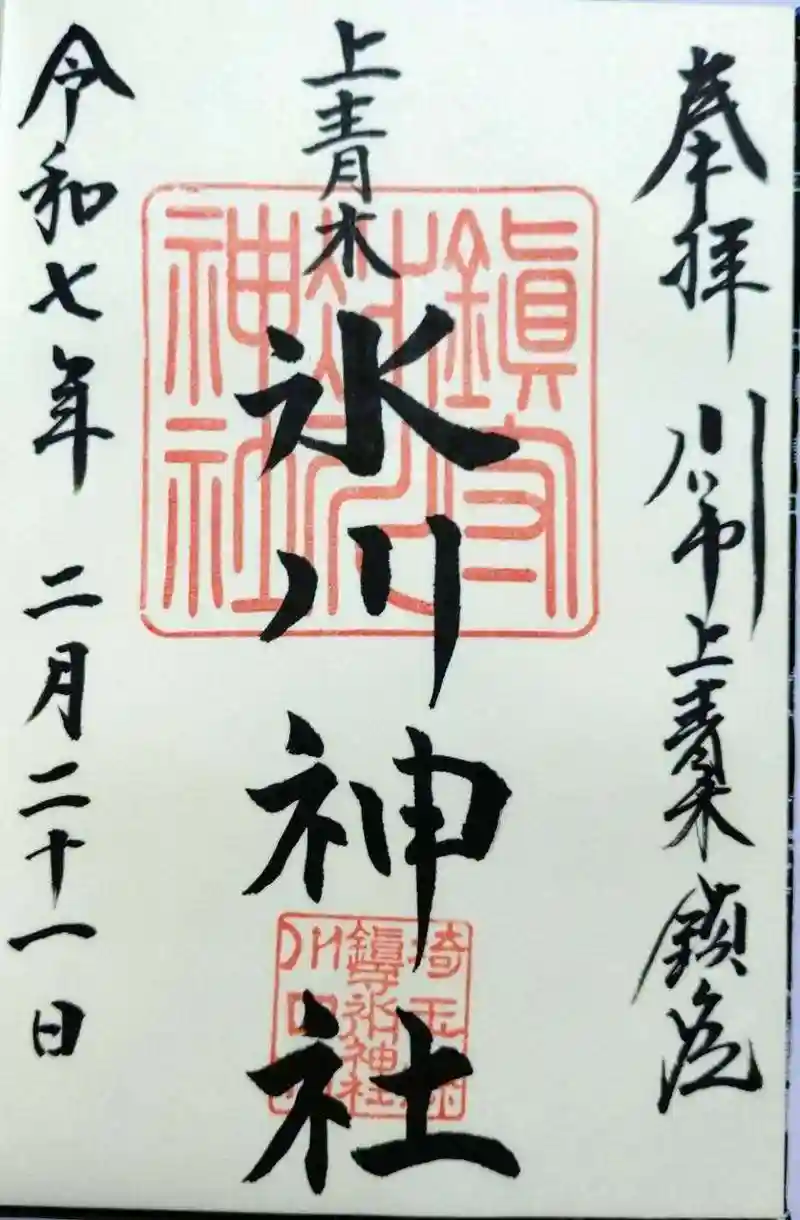 奉拝 川口市上青木鎮座
上青木
氷川神社
令和七年 二月二十一日
鎭守
神社
埼玉
鎭守氷川神社
川口